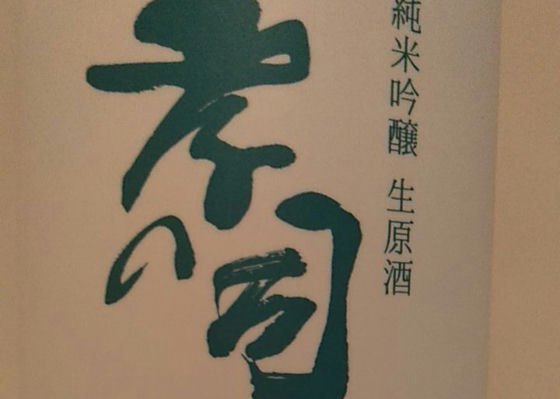 純米吟醸 生原酒
孝の司